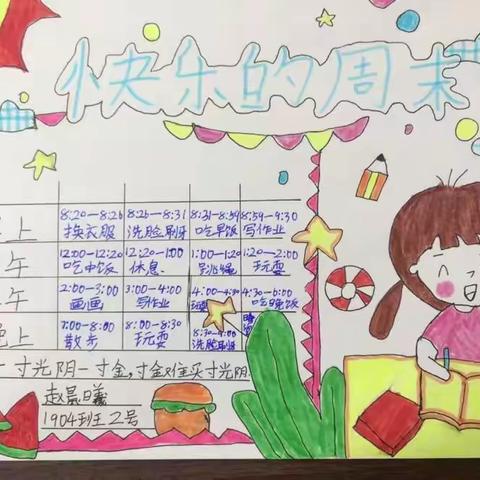 快乐的周末
上 8:20—8:26 8:26—8:31 8:31—8:59 8:59—9:30
换衣服 洗脸刷牙 吃早饭 写作业
午 12:00—12:20 12:20—1:00 1:00—1:20 1:20—2:00
吃中饭 休息 跳绳 玩耍
午 2:00—3:00 3:00—4:00 4:00—4:30 4:30—6:00
画画 写作业 吃晚饭
晚上 7:00—8:00 8:00—8:30 8:30—9:00
散步 玩耍 洗脸刷牙
一寸光阴一寸金,寸金难买寸光阴
赵晨曦
1904班2号